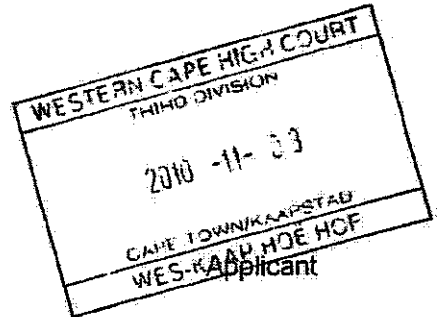 WESTERN CAPE HIGH COURT
THIRD DIVISION
2010 -11-
CAPE TOWN/KAAPSTAD
WES-KAAP HOE HOF
Applicant